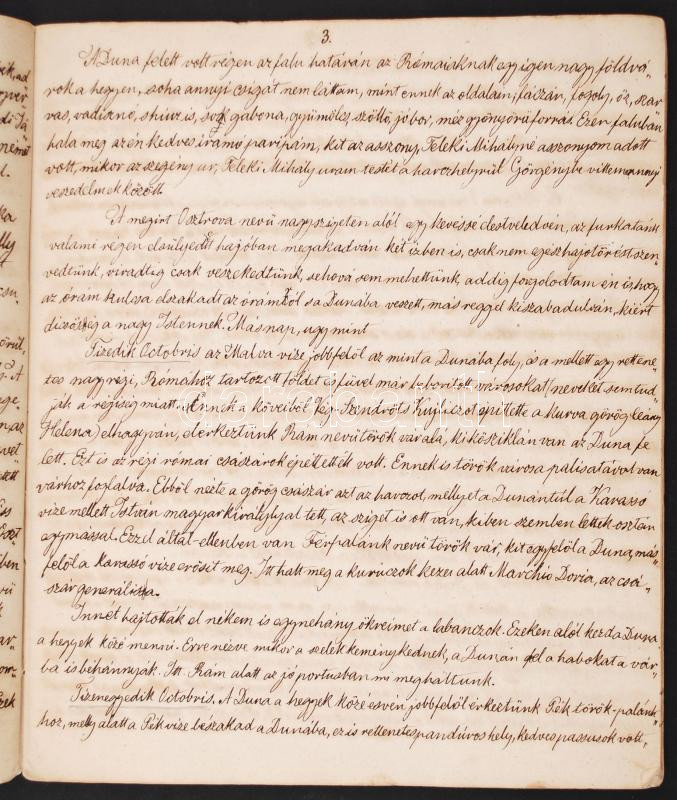 3.
A Duna felett volt régen az falu határán az Rómaiaknak egy igen nagy földvá-
rok a hegyen, soha annyi csigát nem láttam, mint ennek az oldalain; fáczán, fogoly, őz, szar-
vas, vadkanó, shiuz is, sok gabona, gyümölcs, szőllő, jó bor, méz gyönyörű forrás. Ezen faluban
hala meg azén kedves irámó paripám, kit az asszony, Teleki Mihályné asszonyom adott
volt, mikor az szegény úr, Teleki Mihály uram testét a harczhelyről Görgénybe vittem annyi
veszedelmek között.
A megirt Osztrova nevű nagy szigeten alól egy kevéssé elestveledvén, az furkatáink
valami régen elsülyedt hajóban megakadván két izben is, csak nem egész hajótörést szen-
vedtünk, viradtig csak veszekedtünk, sehová sem mehettünk, addig forgolodtam én is hogy
az órám kulcsa elszakadt az órámból s a Dunába veszett, más reggel kiszabadulván, kiért
dicsőség a nagy Istennek. Másnap, ugymint
Tizedik Octobris az Malva vize jobbfelől az mint a Dunába foly, és a mellett egy rettene-
tes nagy régi, Rómához tartozott földet és füvel már beboritott városokat (nevekét sem tud-
ják a régiség miatt. Ennek a köveiből Vég-Szendrőt s Kulicsot épitette a kurva görög leány
Helena) elhagyván, elérkeztünk Rám nevű török várala, ki kősziklán van az Duna fe-
lett. Ezt is az régi római császárok épittették volt. Ennek is török városa palisatával van
várhoz foglalva. Ebből nézte a görög császár azt az harczot, mellyet a Dunántúl a Karasso
vize mellett István magyar királylyal tett, az sziget is ott van, kiben szemben lettek osztán
egymással. Ezzel által-ellenben van Férpalánk nevű török vár, kit egyfelől a Duna, más-
felől a karassó vize erősit meg. Itt halt meg a kuruczok kezei alatt Marchio Doria, az csá-
szár generálissa.
Innét hajtották el nékem is egynehány ökreimet a labanczok. Ezeken alól kezd a Duna
a hegyek közé menni. Erre nézve mikor a szelek keménykednek, a Dunán fel a habokat a vár-
ba is béhányják. Itt Rám alatt az jó portusban mi megháltunk.
Tizenegyedik Octobris. A Duna a hegyek közé esvén jobbfelől érkeztünk Pék török-palánk-
hoz, melly alatt a Pék vize bészakad a Dunába, ez is rettenetes pandúros hely, kedves passusok volt,
darabanth